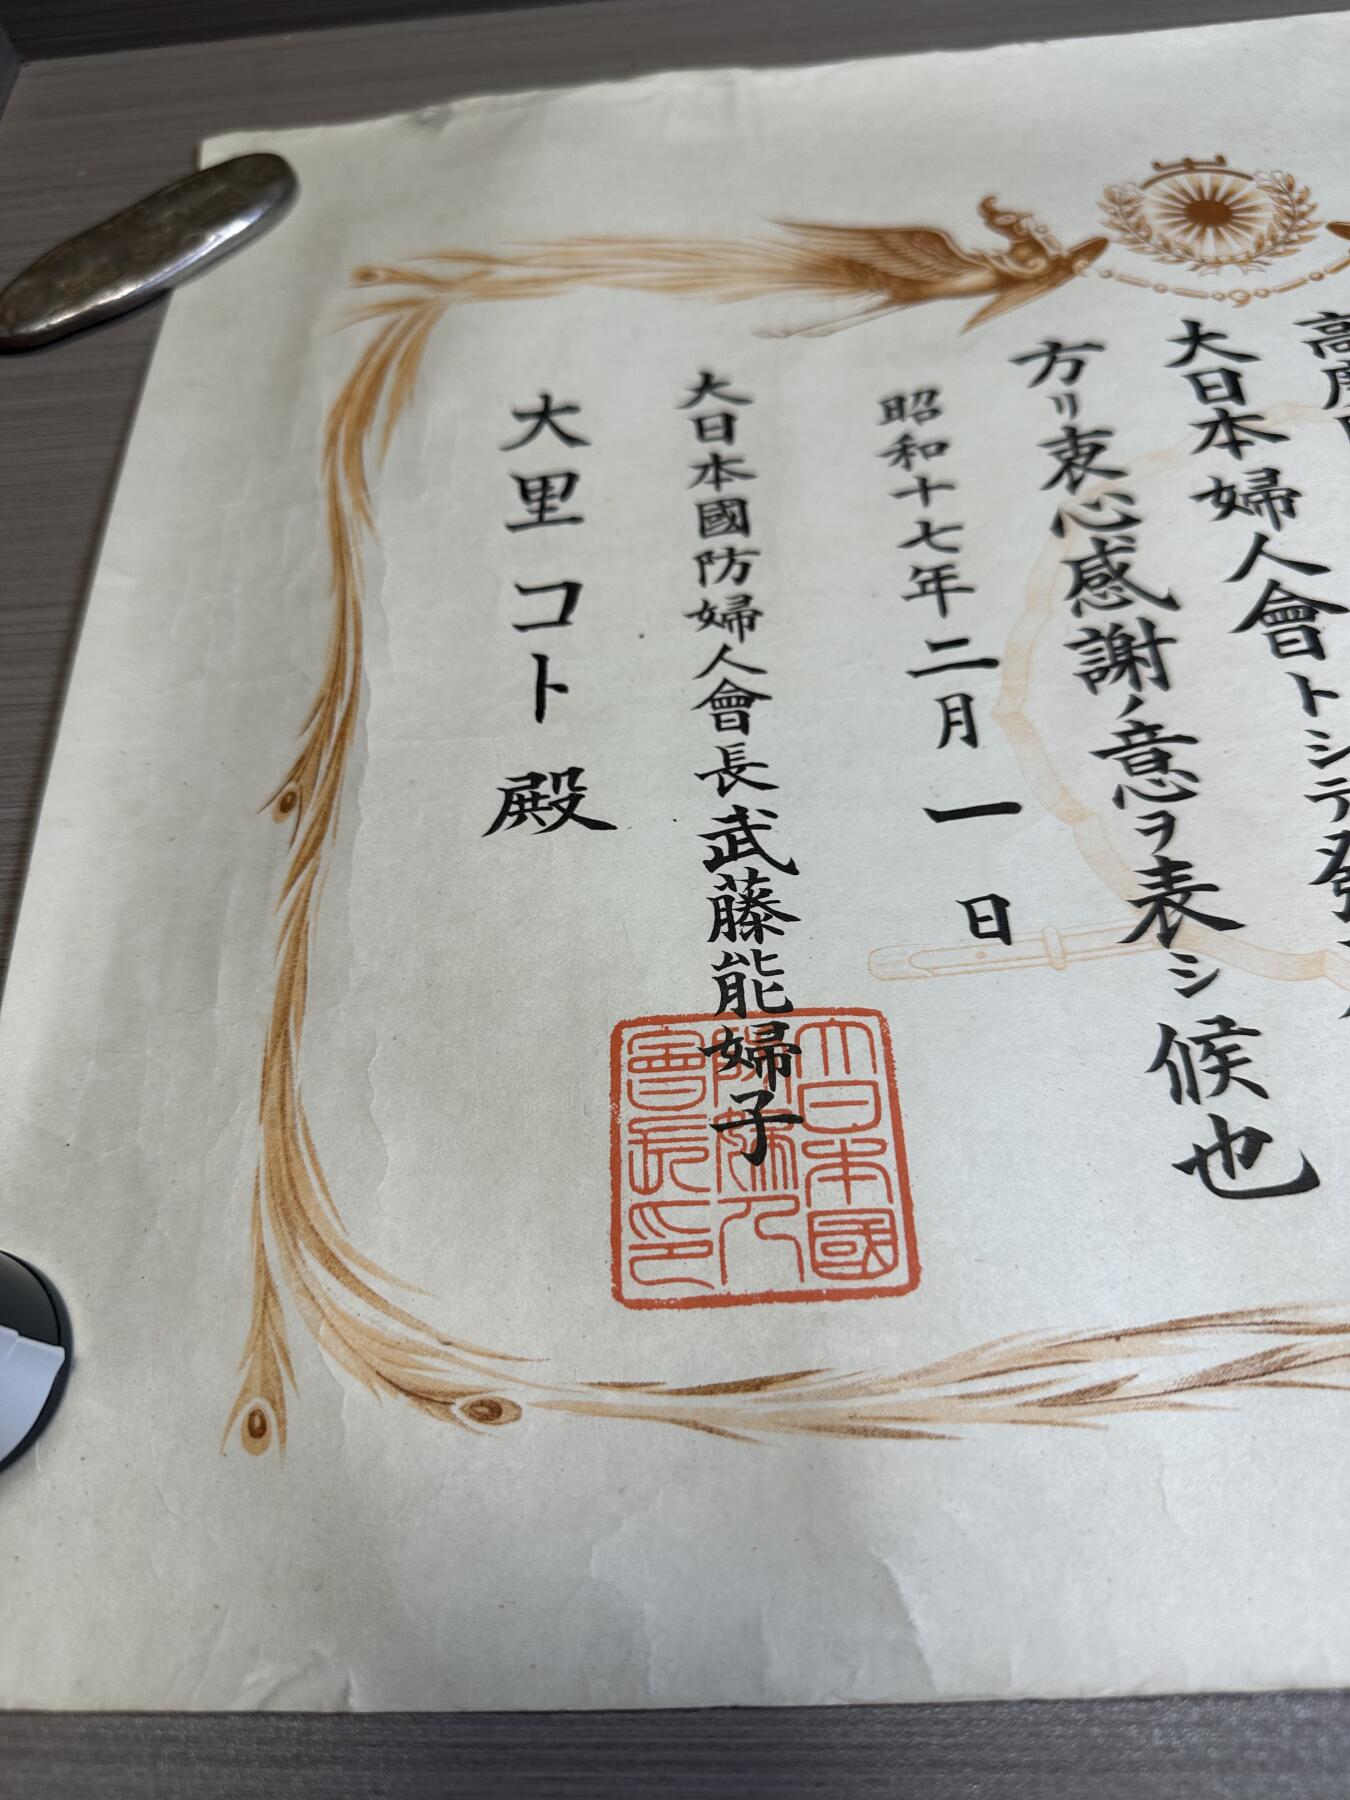 高度
大日本婦人會トシテ發
方リ衷心感謝ノ意ヲ表シ候也
昭和十七年二月一日
大日本國防婦人會長武藤能婦子
大里コト殿
大日本國
防婦人
會長印